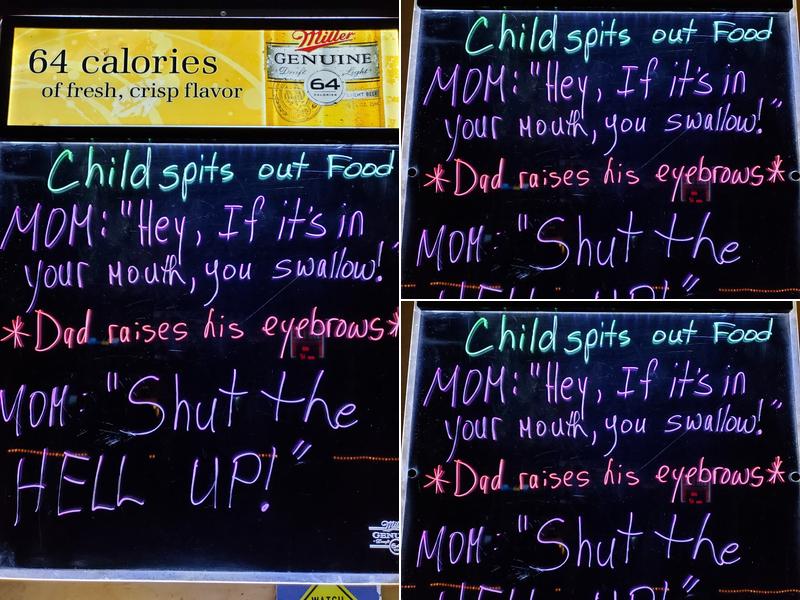 64 calories
of fresh, crisp flavor
Miller
GENUINE
Draft Light
64
CALORIES
LIGHT BEER
Child spits out Food
MOM: "Hey, If it's in
your Mouth, you swallow!"
*Dad raises his eyebrows*
MOM: "Shut the
HELL UP!"
Miller
GENUINE
WATCH
Child spits out Food
MOM: "Hey, If it's in
your Mouth, you swallow!"
*Dad raises his eyebrows*
MOM: "Shut the
HELL UP!"
Child spits out Food
MOM: "Hey, If it's in
your Mouth, you swallow!"
*Dad raises his eyebrows*
MOM: "Shut the
HELL UP!"